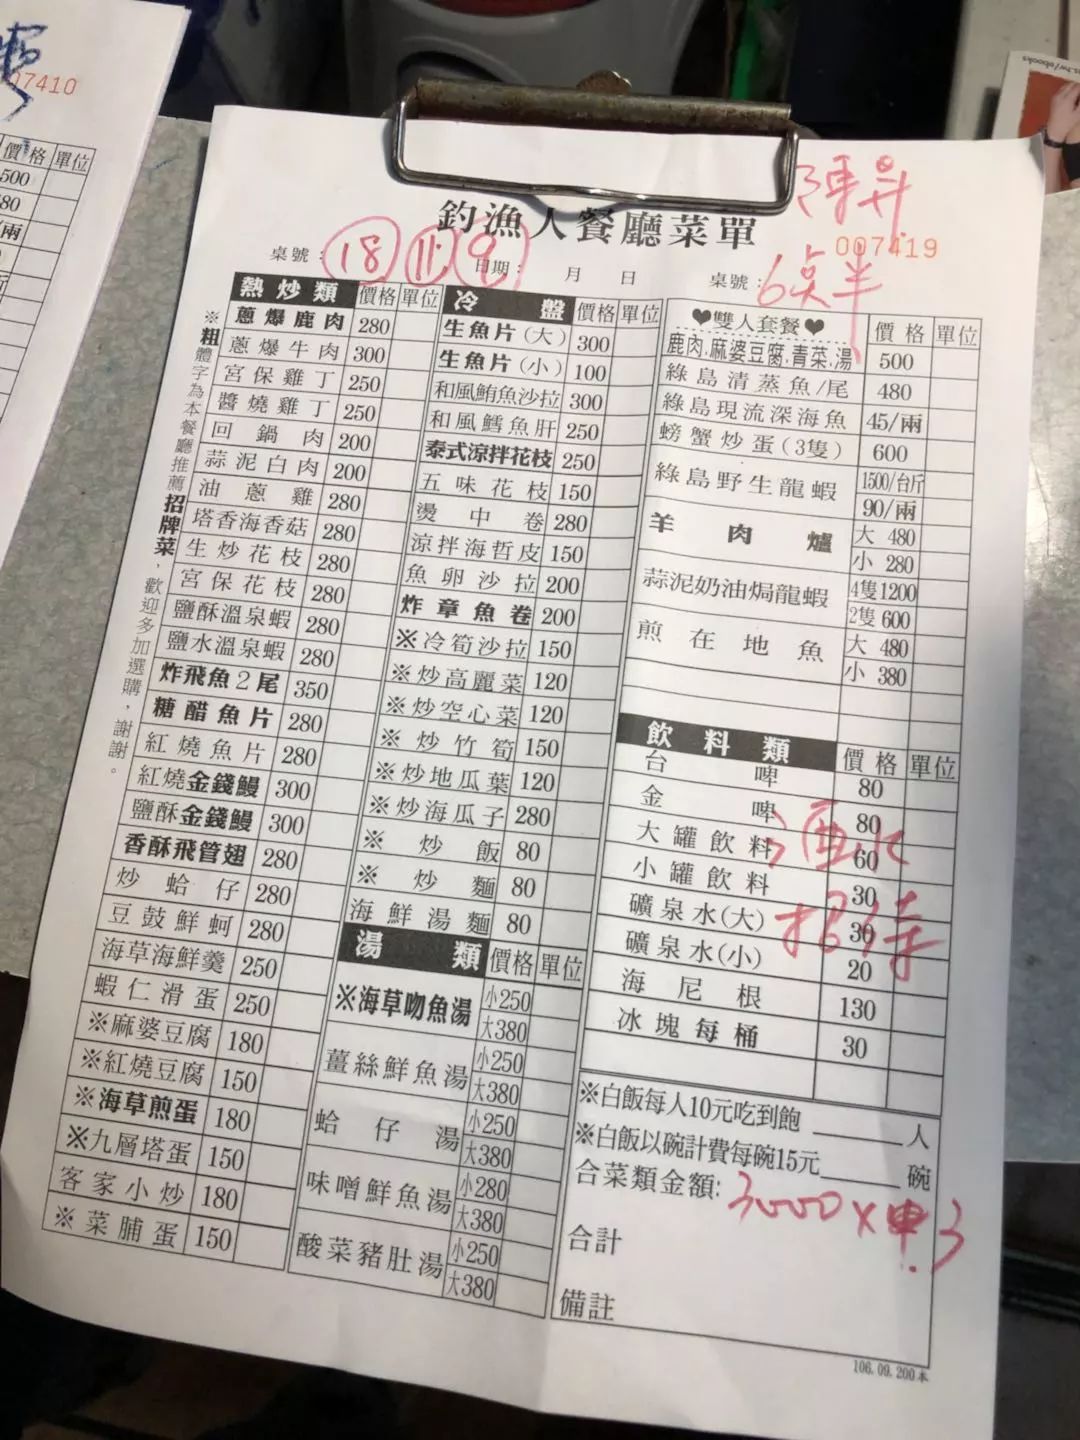 007410
價格 單位
500
80
/兩
釣漁人餐廳菜單
陳昇
007419
桌號: 18 11 9 日期: 月 日 桌號: 6桌半
※粗體字為本餐廳推薦招牌菜,歡迎多加選購,謝謝。
熱炒類 價格 單位
蔥爆鹿肉 280
蔥爆牛肉 300
宮保雞丁 250
醬燒雞丁 250
回鍋肉 200
蒜泥白肉 200
油蔥雞 280
塔香海香菇 280
生炒花枝 280
宮保花枝 280
鹽酥溫泉蝦 280
鹽水溫泉蝦 280
炸飛魚2尾 350
糖醋魚片 280
紅燒魚片 280
紅燒金錢鰻 300
鹽酥金錢鰻 300
香酥飛管翅 280
炒蛤仔 280
豆鼓鮮蚵 280
海草海鮮羹 250
蝦仁滑蛋 250
※麻婆豆腐 180
※紅燒豆腐 150
※海草煎蛋 180
※九層塔蛋 150
客家小炒 180
※菜脯蛋 150
冷盤 價格 單位
生魚片(大) 300
生魚片(小) 100
和風鮪魚沙拉 300
和風鱈魚肝 250
泰式涼拌花枝 250
五味花枝 150
燙中卷 280
涼拌海哲皮 150
魚卵沙拉 200
炸章魚卷 200
※冷筍沙拉 150
※炒高麗菜 120
※炒空心菜 120
※炒竹筍 150
※炒地瓜葉 120
※炒海瓜子 280
※炒飯 80
※炒麵 80
海鮮湯麵 80
湯類 價格 單位
※海草吻魚湯 小250
大380
薑絲鮮魚湯 小250
大380
蛤仔湯 小250
大380
味噌鮮魚湯 小280
大380
酸菜豬肚湯 小250
大380
❤雙人套餐❤ 價格 單位
鹿肉.麻婆豆腐.青菜.湯 500
綠島清蒸魚/尾 480
綠島現流深海魚 45/兩
螃蟹炒蛋(3隻) 600
綠島野生龍蝦 1500/台斤
90/兩
羊肉爐 大 480
小 280
蒜泥奶油焗龍蝦 4隻1200
2隻600
煎在地魚 大 480
小 380
飲料類 價格 單位
台啤 80
金啤 80
大罐飲料 60
小罐飲料 30
礦泉水(大) 30
礦泉水(小) 20
海尼根 130
冰塊每桶 30
酒水
招待
※白飯每人10元吃到飽 人
※白飯以碗計費每碗15元 碗
合菜類金額: 3000×
合計
備註
106.09.200本